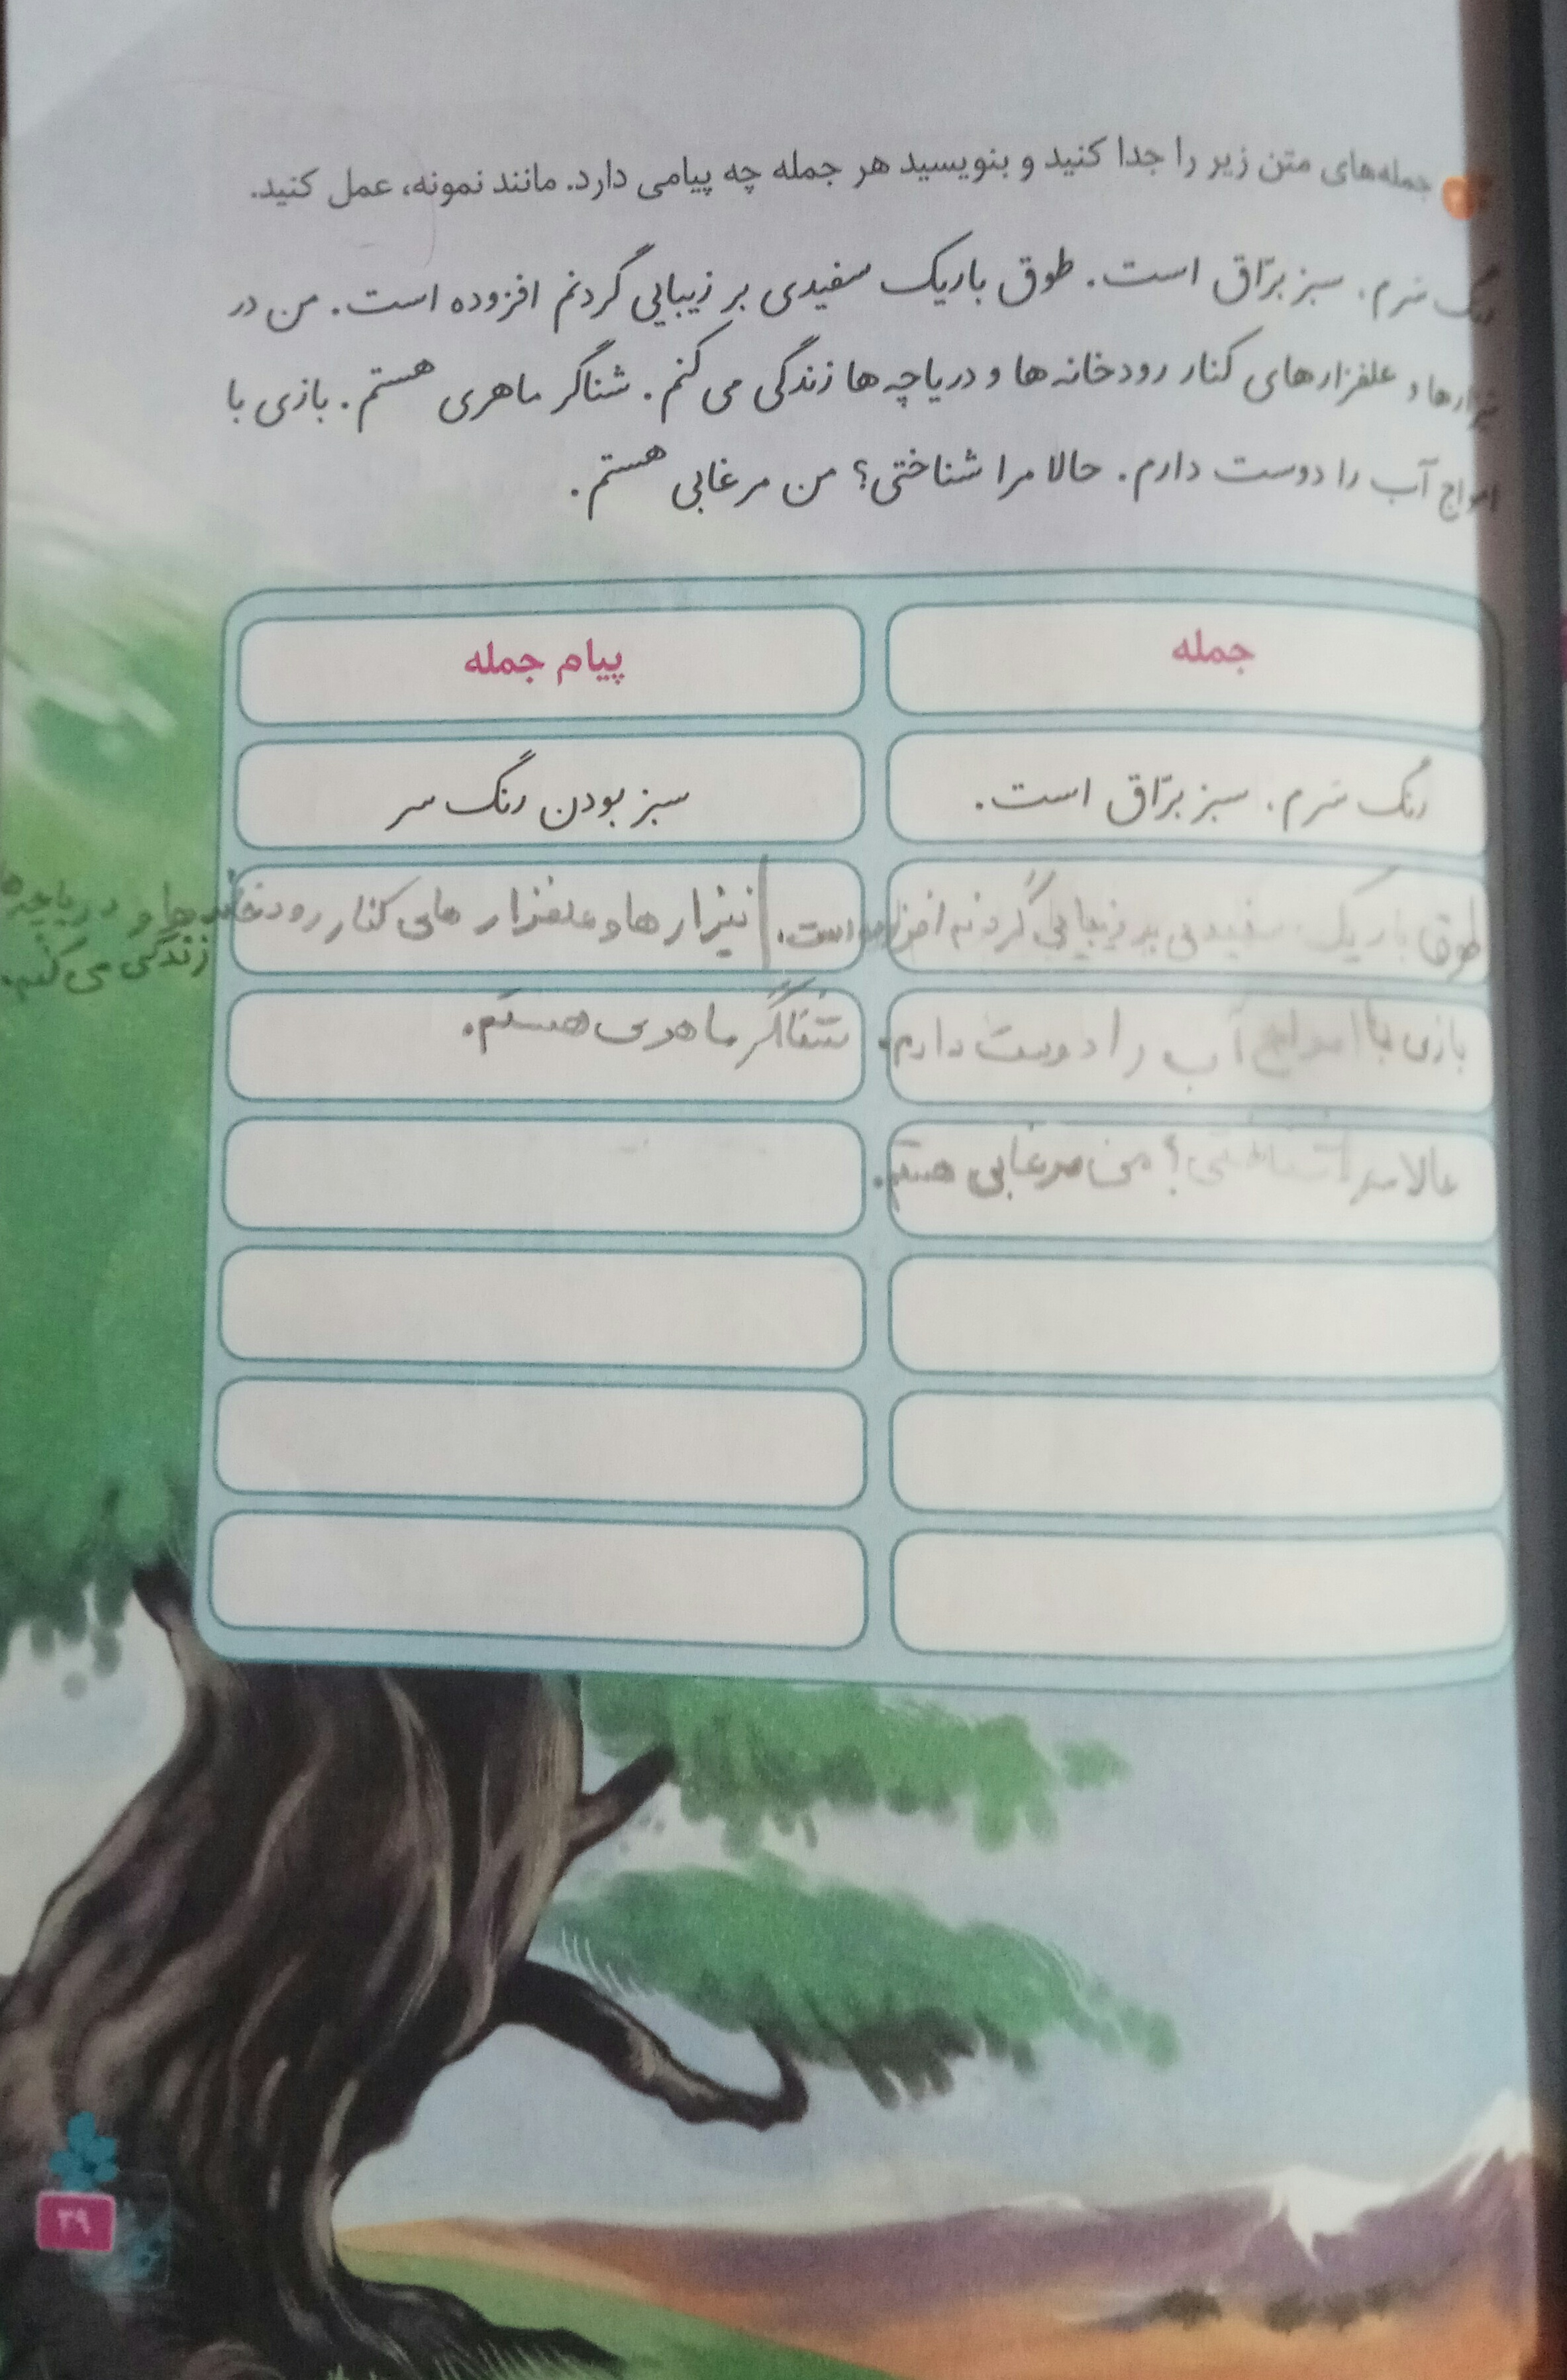 جمله‌های متن زیر را جدا کنید و بنویسید هر جمله چه پیامی دارد. مانند نمونه، عمل کنید.
رنگ سَرم، سبز برّاق است. طوق باریک سفیدی بر زیبایی گردنم افزوده است. من در
نیزارها و علفزارهای کنار رودخانه‌ها و دریاچه‌ها زندگی می‌کنم. شناگر ماهری هستم. بازی با
امواج آب را دوست دارم. حالا مرا شناختی؟ من مرغابی هستم.
جمله
پیام جمله
رنگ سَرم، سبز برّاق است.
سبز بودن رنگ سر
طوق باریک سفیدی بر زیبایی گردنم افزوده است.
نیزارها و علفزار های کنار رودخانه‌ها و دریاچه‌ها
زندگی می‌کنم.
بازی با امواج آب را دوست دارم.
شناگر ماهری هستم.
حالا مرا شناختی؟ من مرغابی هستم.
۳۹